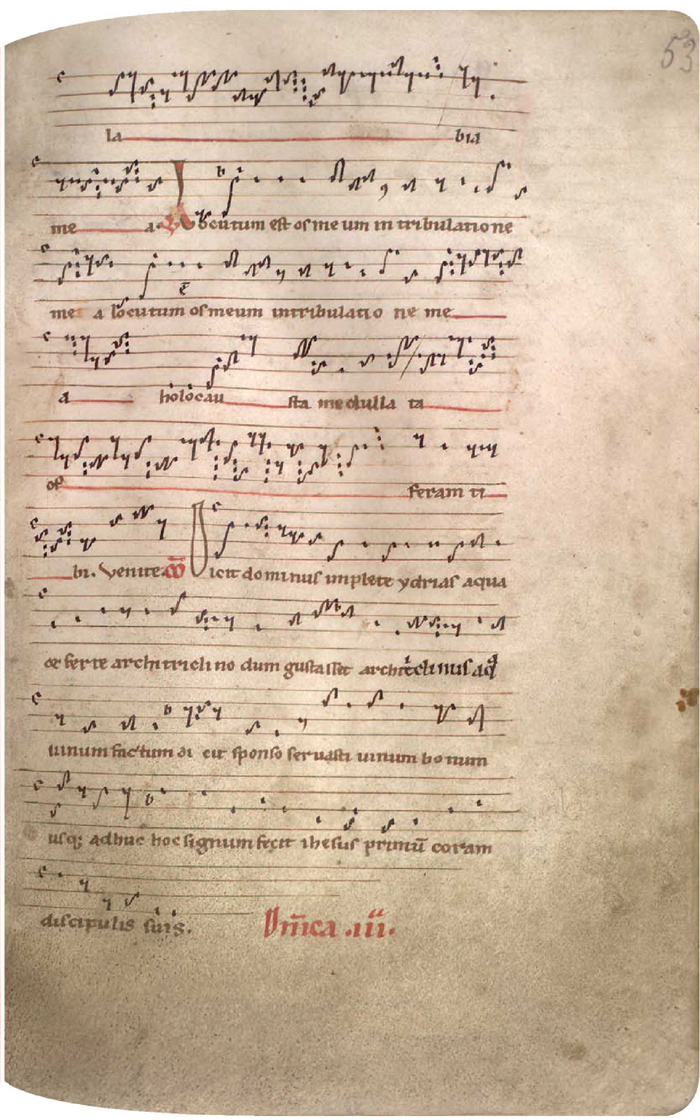 53
la bia
me a. Locutum est os me um in tribulatione
me a locutum os meum intribulatio ne me
a holocau sta medulla ta
of feram ti
bi. Venite. Co Dicit dominus implete ydrias aqua
et ferte architriclino dum gustasset architriclinus aqª
uinum factum di cit sponso seruasti uinum bonum
usq; adhuc hoc signum fecit ihesus primū coram
discipulis suis. Dm̄ica .iii.